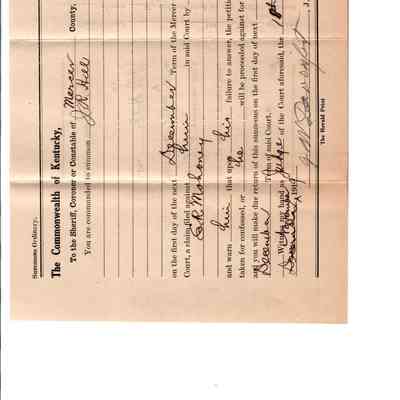 Summons Ordinary.
The Commonwealth of Kentucky,
To the Sheriff, Coroner or Constable of Mercer County,
You are commanded to summon J R Hill
on the first day of the next December Term of the Mercer
Court, a claim filed against him in said Court by
E R Mahoney
and warn him that upon his failure to answer, the petiti
taken for confessed, or he will be proceeded against for
and you will make due return of this summons on the first day of next
December Term of said Court.
Witness my hand as Judge of the Court aforesaid, the 18th
191
The Herald Print